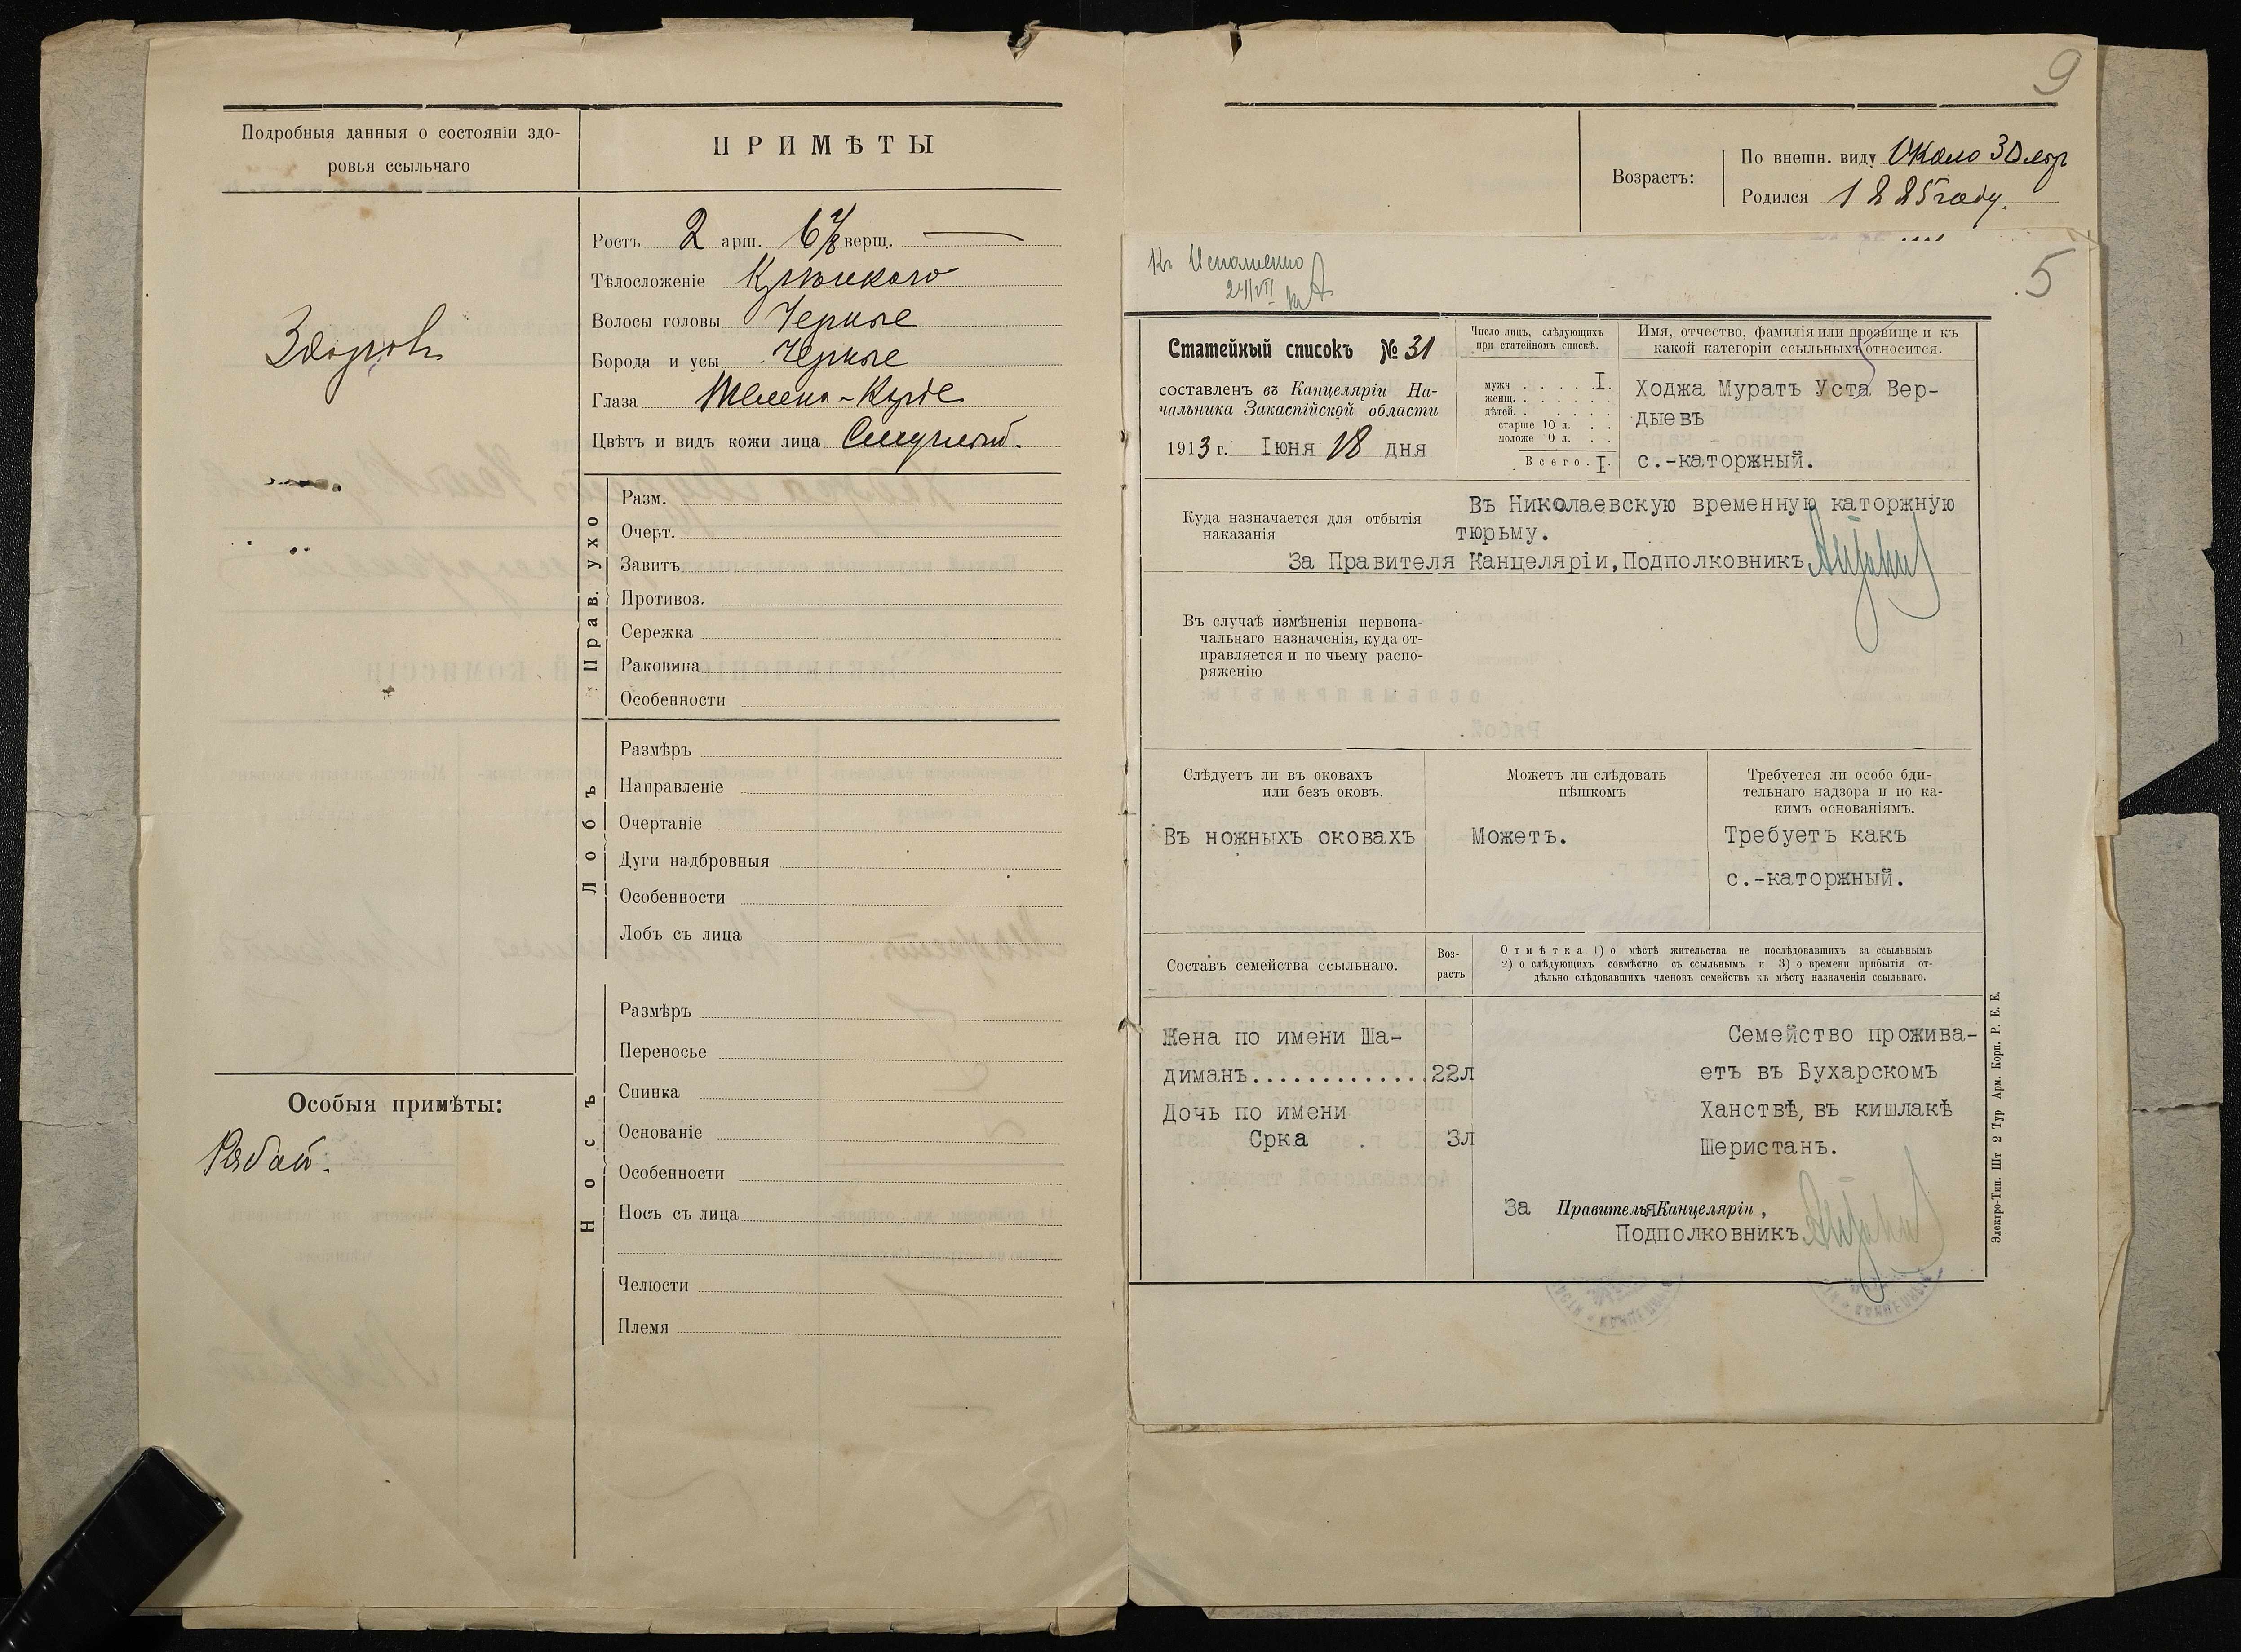 Подробныя данныя о состояніи здо-
ровья ссыльнаго
Здоровъ
Особыя примѣты:
Рябой.
ПРИМѢТЫ
Ростъ 2 арш. 6 7/8 верщ.
Тѣлосложеніе Крѣпкаго
Волосы головы Черные
Борода и усы Черные
Глаза Темно-Каріе
Цвѣтъ и видъ кожи лица Смуглый.
Прав. ухо
Разм.
Очерт.
Завитъ
Противоз.
Сережка
Раковина
Особенности
Лобъ
Размѣръ
Направленіе
Очертаніе
Дуги надбровныя
Особенности
Лобъ съ лица
Носъ
Размѣръ
Переносье
Спинка
Основаніе
Особенности
Носъ съ лица
Челюсти
Племя
9
Возрастъ:
По внешн. виду Около 30 лѣтъ
Родился 1885 году.
5
Исполнено
24/VII
Статейный списокъ № 31
составленъ въ Канцеляріи На-
чальника Закаспійской области
1913 г. Іюня 18 дня
Число лицъ, слѣдующихъ
при статейномъ спискѣ.
мужч . . . . . I.
женщ. . . . . .
дѣтей. . . . . .
старше 10 л. . .
моложе 0 л. . .
Всего. I
Имя, отчество, фамилія или прозвище и къ
какой категоріи ссыльныхъ относится.
Ходжа Муратъ Уста Вер-
дыевъ
с.-каторжный.
Куда назначается для отбытія
наказанія
Въ Николаевскую временную каторжную
тюрьму.
За Правителя Канцеляріи, Подполковникъ
Въ случаѣ измѣненія первона-
чальнаго назначенія, куда от-
правляется и по чьему распо-
ряженію
Слѣдуетъ ли въ оковахъ
или безъ оковъ.
Въ ножныхъ оковахъ
Можетъ ли слѣдовать
пѣшкомъ
Можетъ.
Требуется ли особо бди-
тельнаго надзора и по ка-
кимъ основаніямъ.
Требуетъ какъ
с.-каторжный.
Составъ семейства ссыльнаго.
Воз-
растъ
Отмѣтка 1) о мѣстѣ жительства не послѣдовавшихъ за ссыльнымъ
2) о слѣдующихъ совмѣстно съ ссыльнымъ и 3) о времени прибытія от-
дѣльно слѣдовавшихъ членовъ семействъ къ мѣсту назначенія ссыльнаго.
Жена по имени Ша-
диманъ..............22л
Дочь по имени
Срка . 3л
Семейство прожива-
етъ въ Бухарскомъ
Ханствѣ, въ кишлакѣ
Шеристанъ.
За Правителя Канцеляріи,
Подполковникъ
Электро-Тип. Шт 2 Тур Арм. Корп. Р. Е. Е.